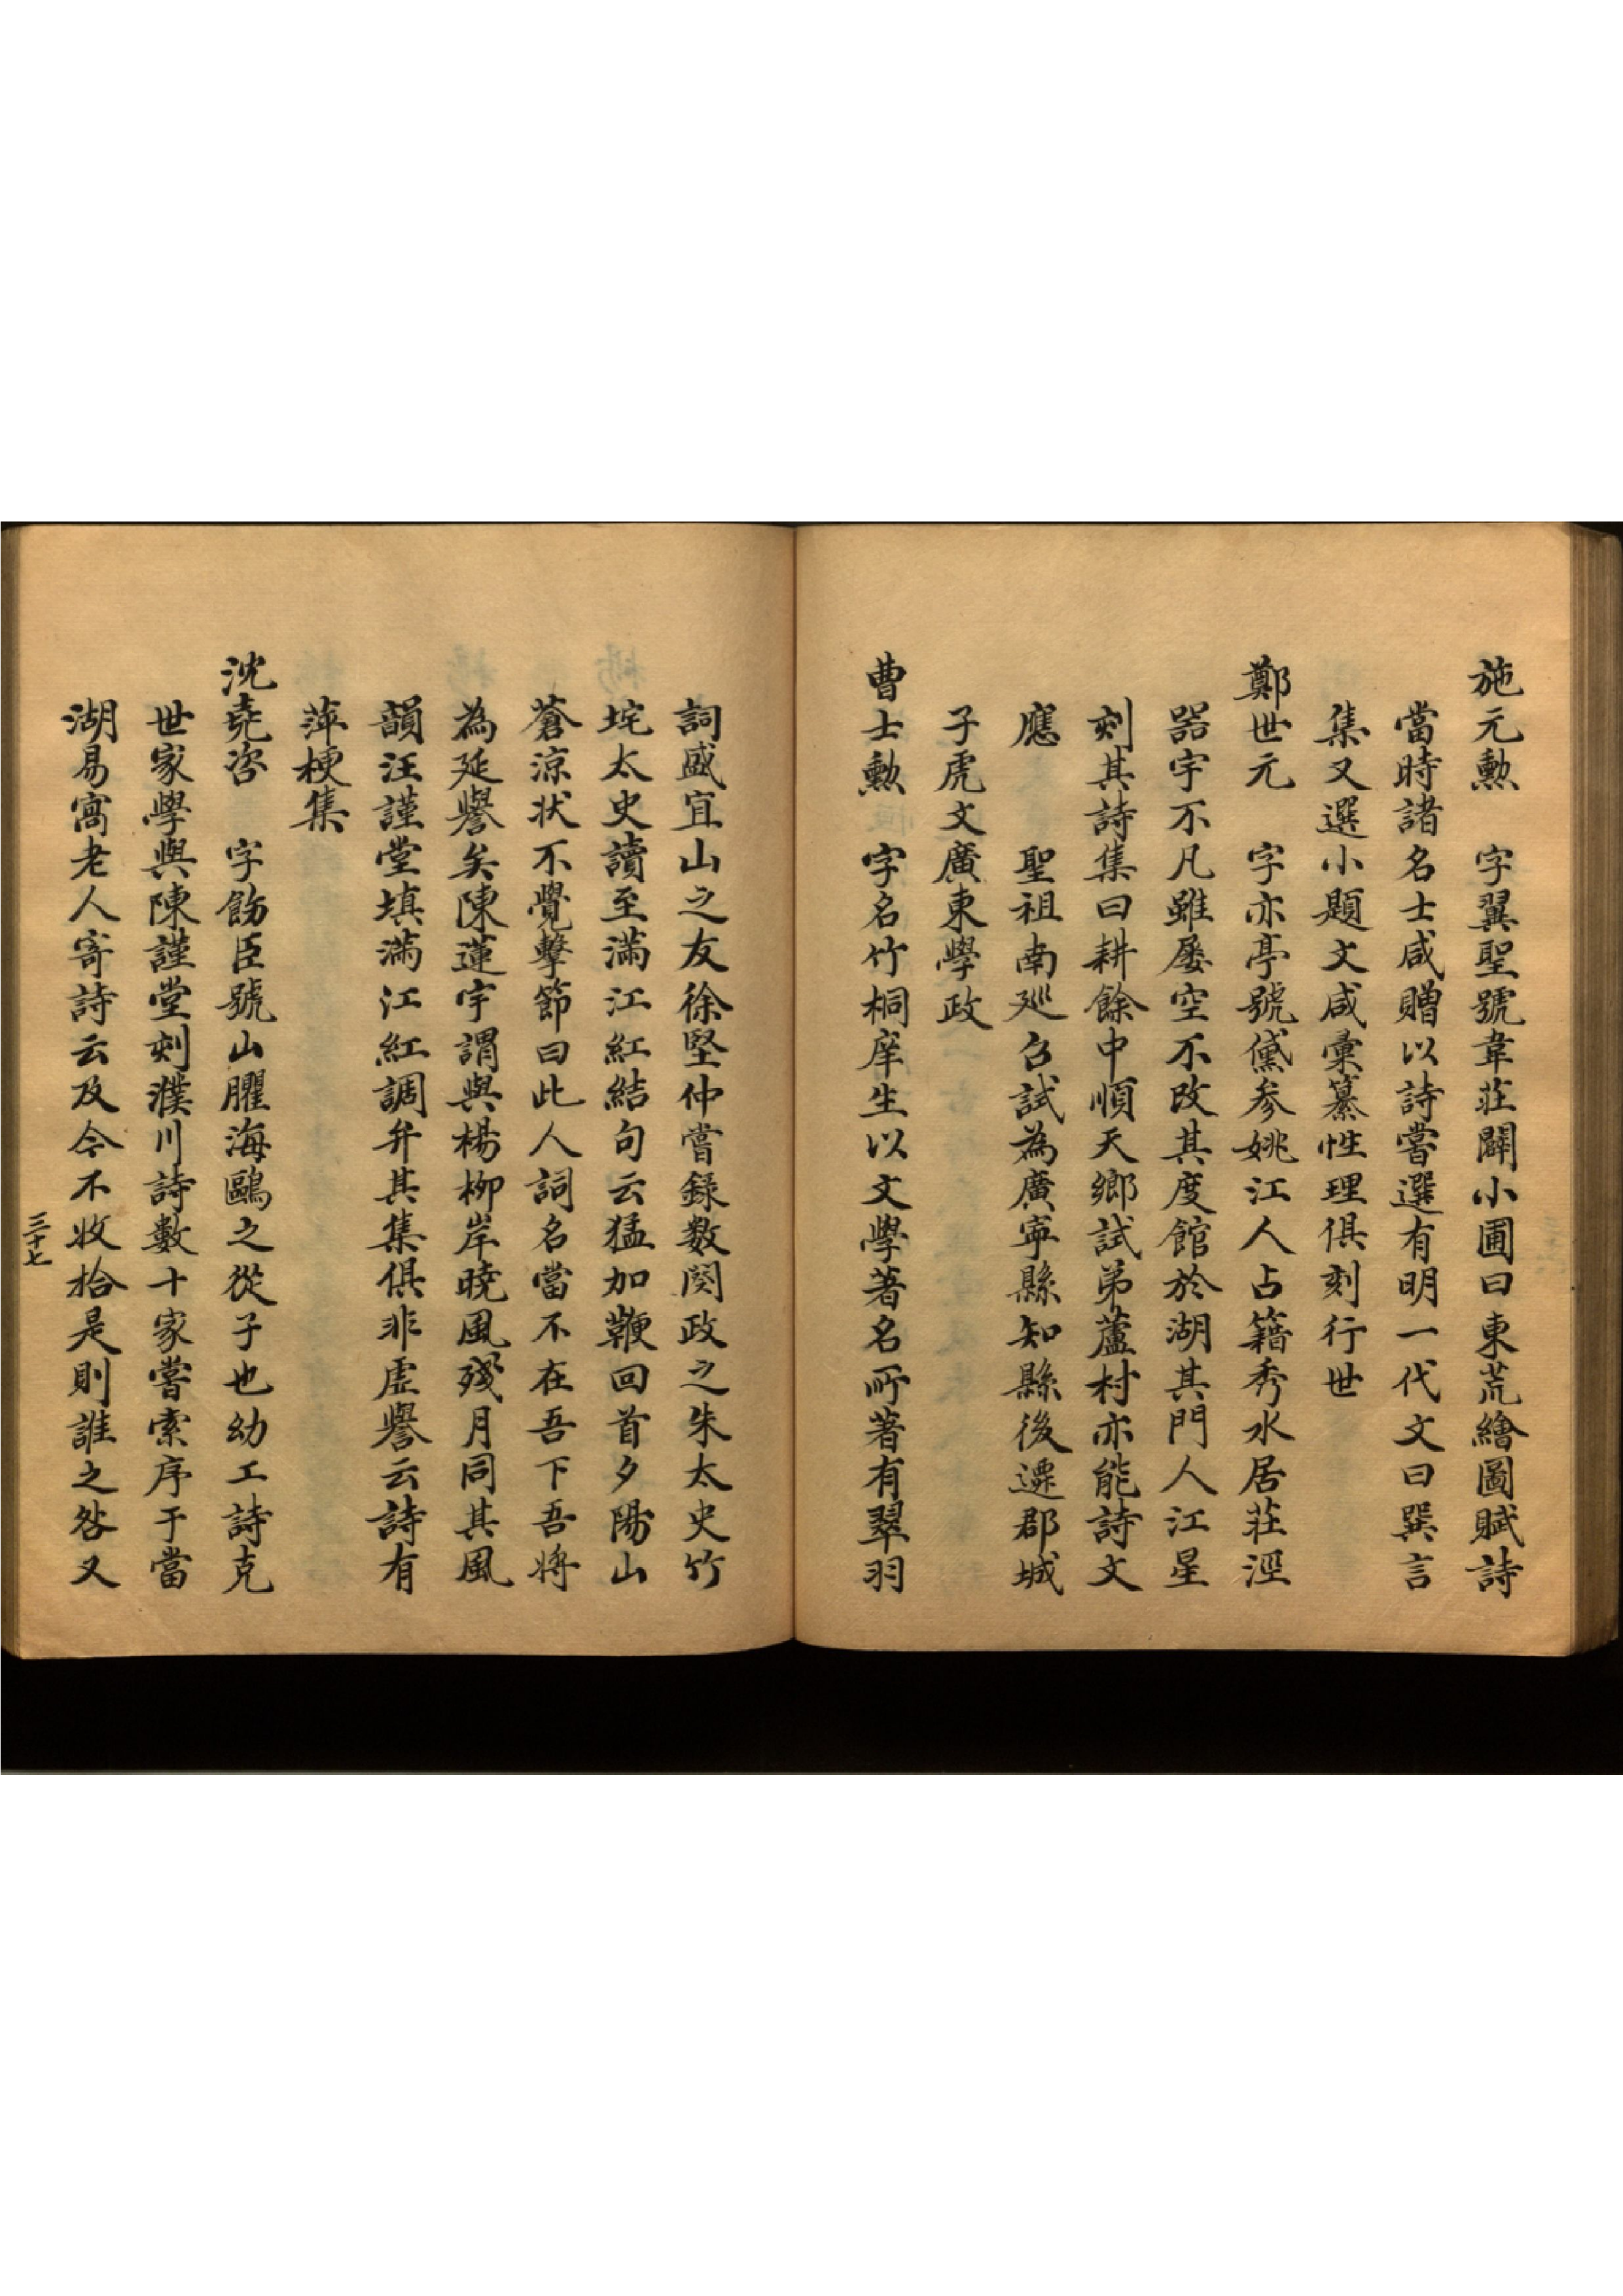 施元勲　字翼聖號韋莊闢小圃曰東荒繪圖賦詩
當時諸名士咸贈以詩嘗選有明一代文曰巽言
集又選小題文咸彙纂性理俱刻行世
鄭世元　字亦亭號黛参姚江人占籍秀水居莊涇
器宇不凡雖屡空不改其度館於湖其門人江星
刻其詩集曰耕餘中順天鄉試弟蘆村亦能詩文
應　　聖祖南廵召試為廣寧縣知縣後遷郡城
子虎文廣東學政
曹士勲　字名竹桐庠生以文學著名所著有翠羽
詞盛宜山之友徐堅仲嘗録数闋政之朱太史竹
垞太史讀至滿江紅結句云猛加鞭回首夕陽山
蒼凉状不覺擊節曰此人詞名當不在吾下吾將
為延譽矣陳蓮宇謂與楊柳岸曉風殘月同其風
韻汪謹堂填滿江紅調弁其集俱非虚譽云詩有
萍梗集
沈堯咨　字餝臣號山臞海鷗之從子也幼工詩克
世家學與陳謹堂刻濮川詩數十家嘗索序于當
湖易窩老人寄詩云及今不收拾是則誰之咎又
三十七